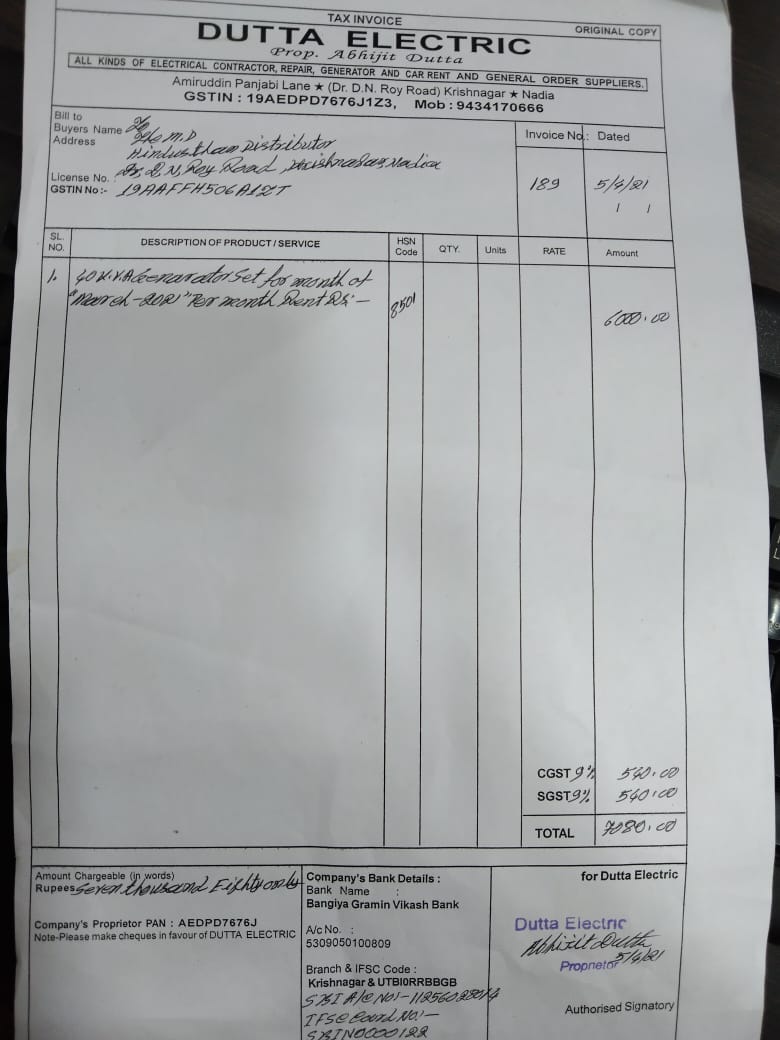 TAX INVOICE
ORIGINAL COPY
DUTTA ELECTRIC
Prop. Abhijit Dutta
ALL KINDS OF ELECTRICAL CONTRACTOR, REPAIR, GENERATOR AND CAR RENT AND GENERAL ORDER SUPPLIERS.
Amiruddin Panjabi Lane ★ (Dr. D.N. Roy Road) Krishnagar ★ Nadia
GSTIN : 19AEDPD7676J1Z3, Mob : 9434170666
Bill to
Buyers Name The M.D
Address Hindusthan Distributor
Dr. D. N. Roy Road, Krishnagar, Nadia
License No. :
GSTIN No :- 19AAFFH506A1ZT
Invoice No.: Dated
189 5/4/21
SL. NO. DESCRIPTION OF PRODUCT / SERVICE HSN Code QTY. Units RATE Amount
1. 40 K.V.A Genarator Set for month of
"March-2021" Per month Rent Rs:- 8501 6000.00
CGST 9% 540.00
SGST 9% 540.00
TOTAL 7080.00
Amount Chargeable (in words)
Rupees Seven thousand Eighty only
Company's Proprietor PAN : AEDPD7676J
Note-Please make cheques in favour of DUTTA ELECTRIC
Company's Bank Details :
Bank Name :
Bangiya Gramin Vikash Bank
A/c No. :
5309050100809
Branch & IFSC Code :
Krishnagar & UTBI0RRBBGB
SBI A/C No:-
IFSC No:-
SBIN0000122
for Dutta Electric
Dutta Electric
Abhijit Dutta
5/4/21
Proprietor
Authorised Signatory